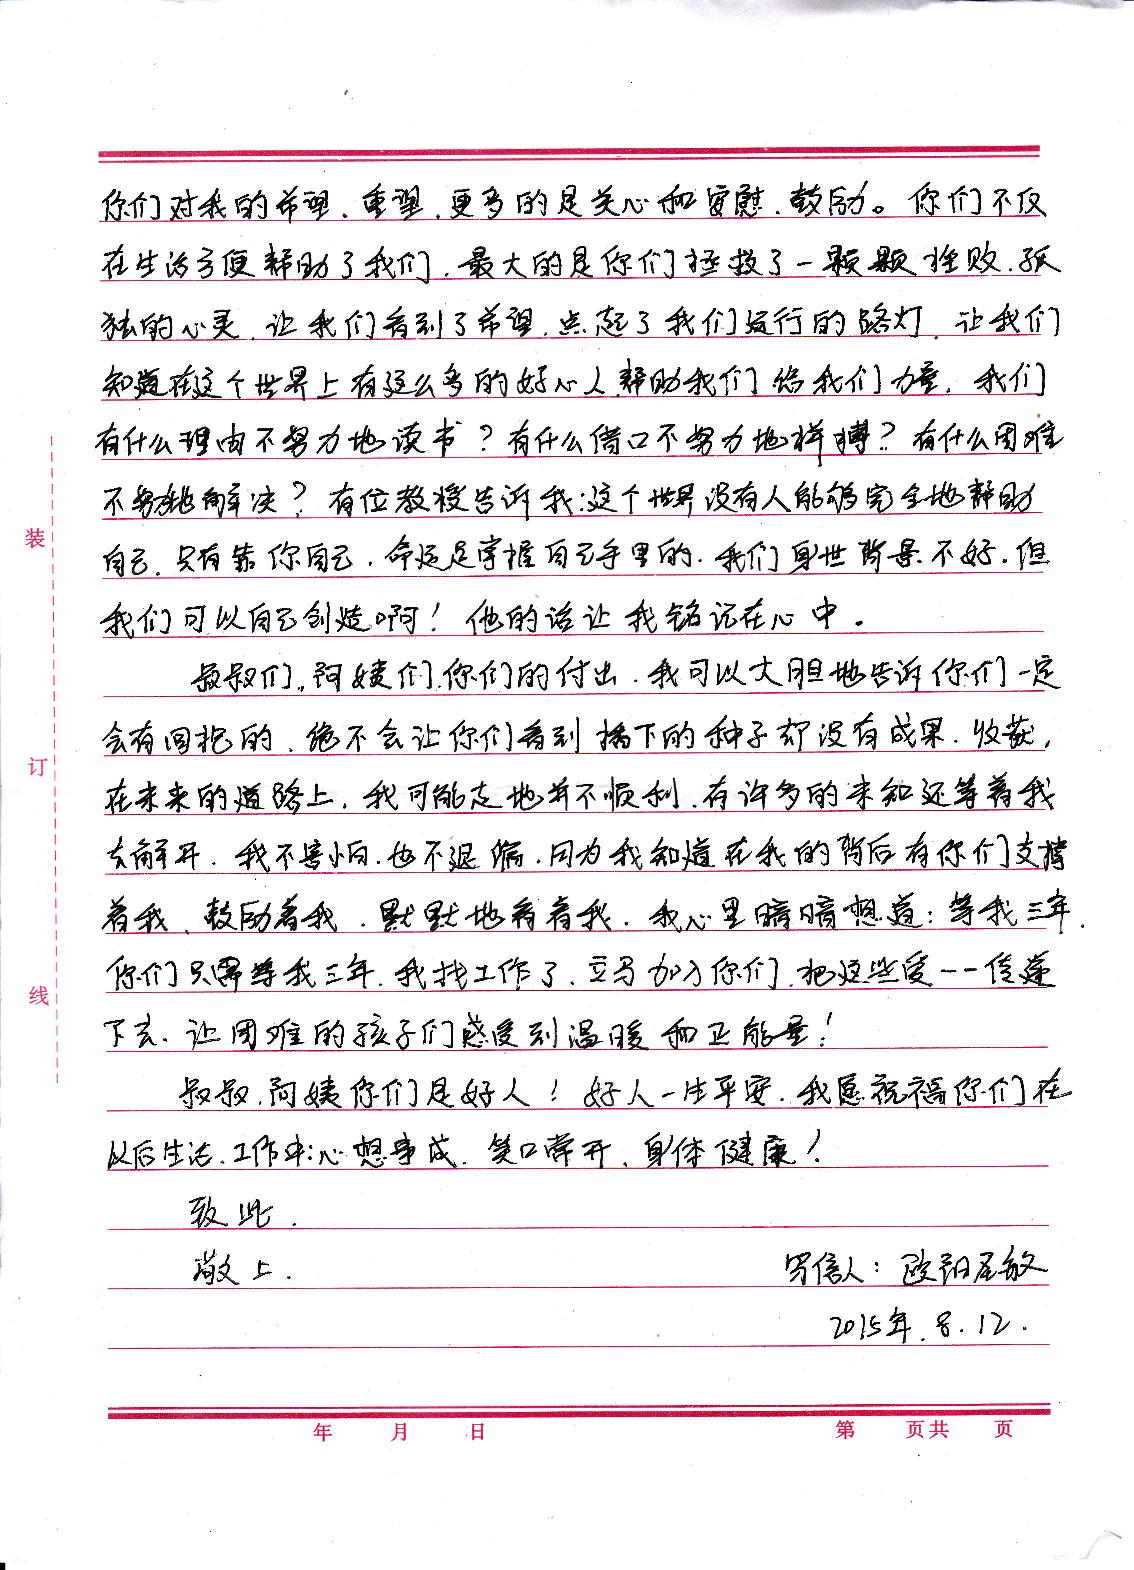 你们对我的希望、重望、更多的是关心和安慰、鼓励。你们不仅
在生活方便帮助了我们、最大的是你们拯救了一颗颗挫败、孤
独的心灵、让我们看到了希望、点起了我们运行的路灯、让我们
知道在这个世界上有这么多的好心人帮助我们给我们力量、我们
有什么理由不努力地读书？有什么借口不努力地拼搏？有什么困难
不努力地解决？有位教授告诉我：这个世界没有人能够完全地帮助
自己、只有靠你自己、命运是掌握自己手里的、我们身世背景不好、但
我们可以自己创造啊！他的话让我铭记在心中。
叔叔们、阿姨们、你们的付出、我可以大胆地告诉你们一定
会有回报的、绝不会让你们看到播下的种子却没有成果、收获，
在未来的道路上、我可能走地并不顺利、有许多的未知还等着我
去解开、我不害怕、也不退缩、因为我知道在我的背后有你们支撑
着我、鼓励着我、默默地看着我、我心里暗暗想道：等我三年、
你们只需等我三年、我找工作了、立马加入你们、把这些爱一一传递
下去、让困难的孩子们感受到温暖和正能量！
叔叔、阿姨你们是好人！好人一生平安、我愿祝福你们在
以后生活、工作中：心想事成、笑口常开、身体健康！
致此、
敬上、
写信人：欧阳圣敏
2015年.8.12.
装
订
线
年 月 日 第 页共 页